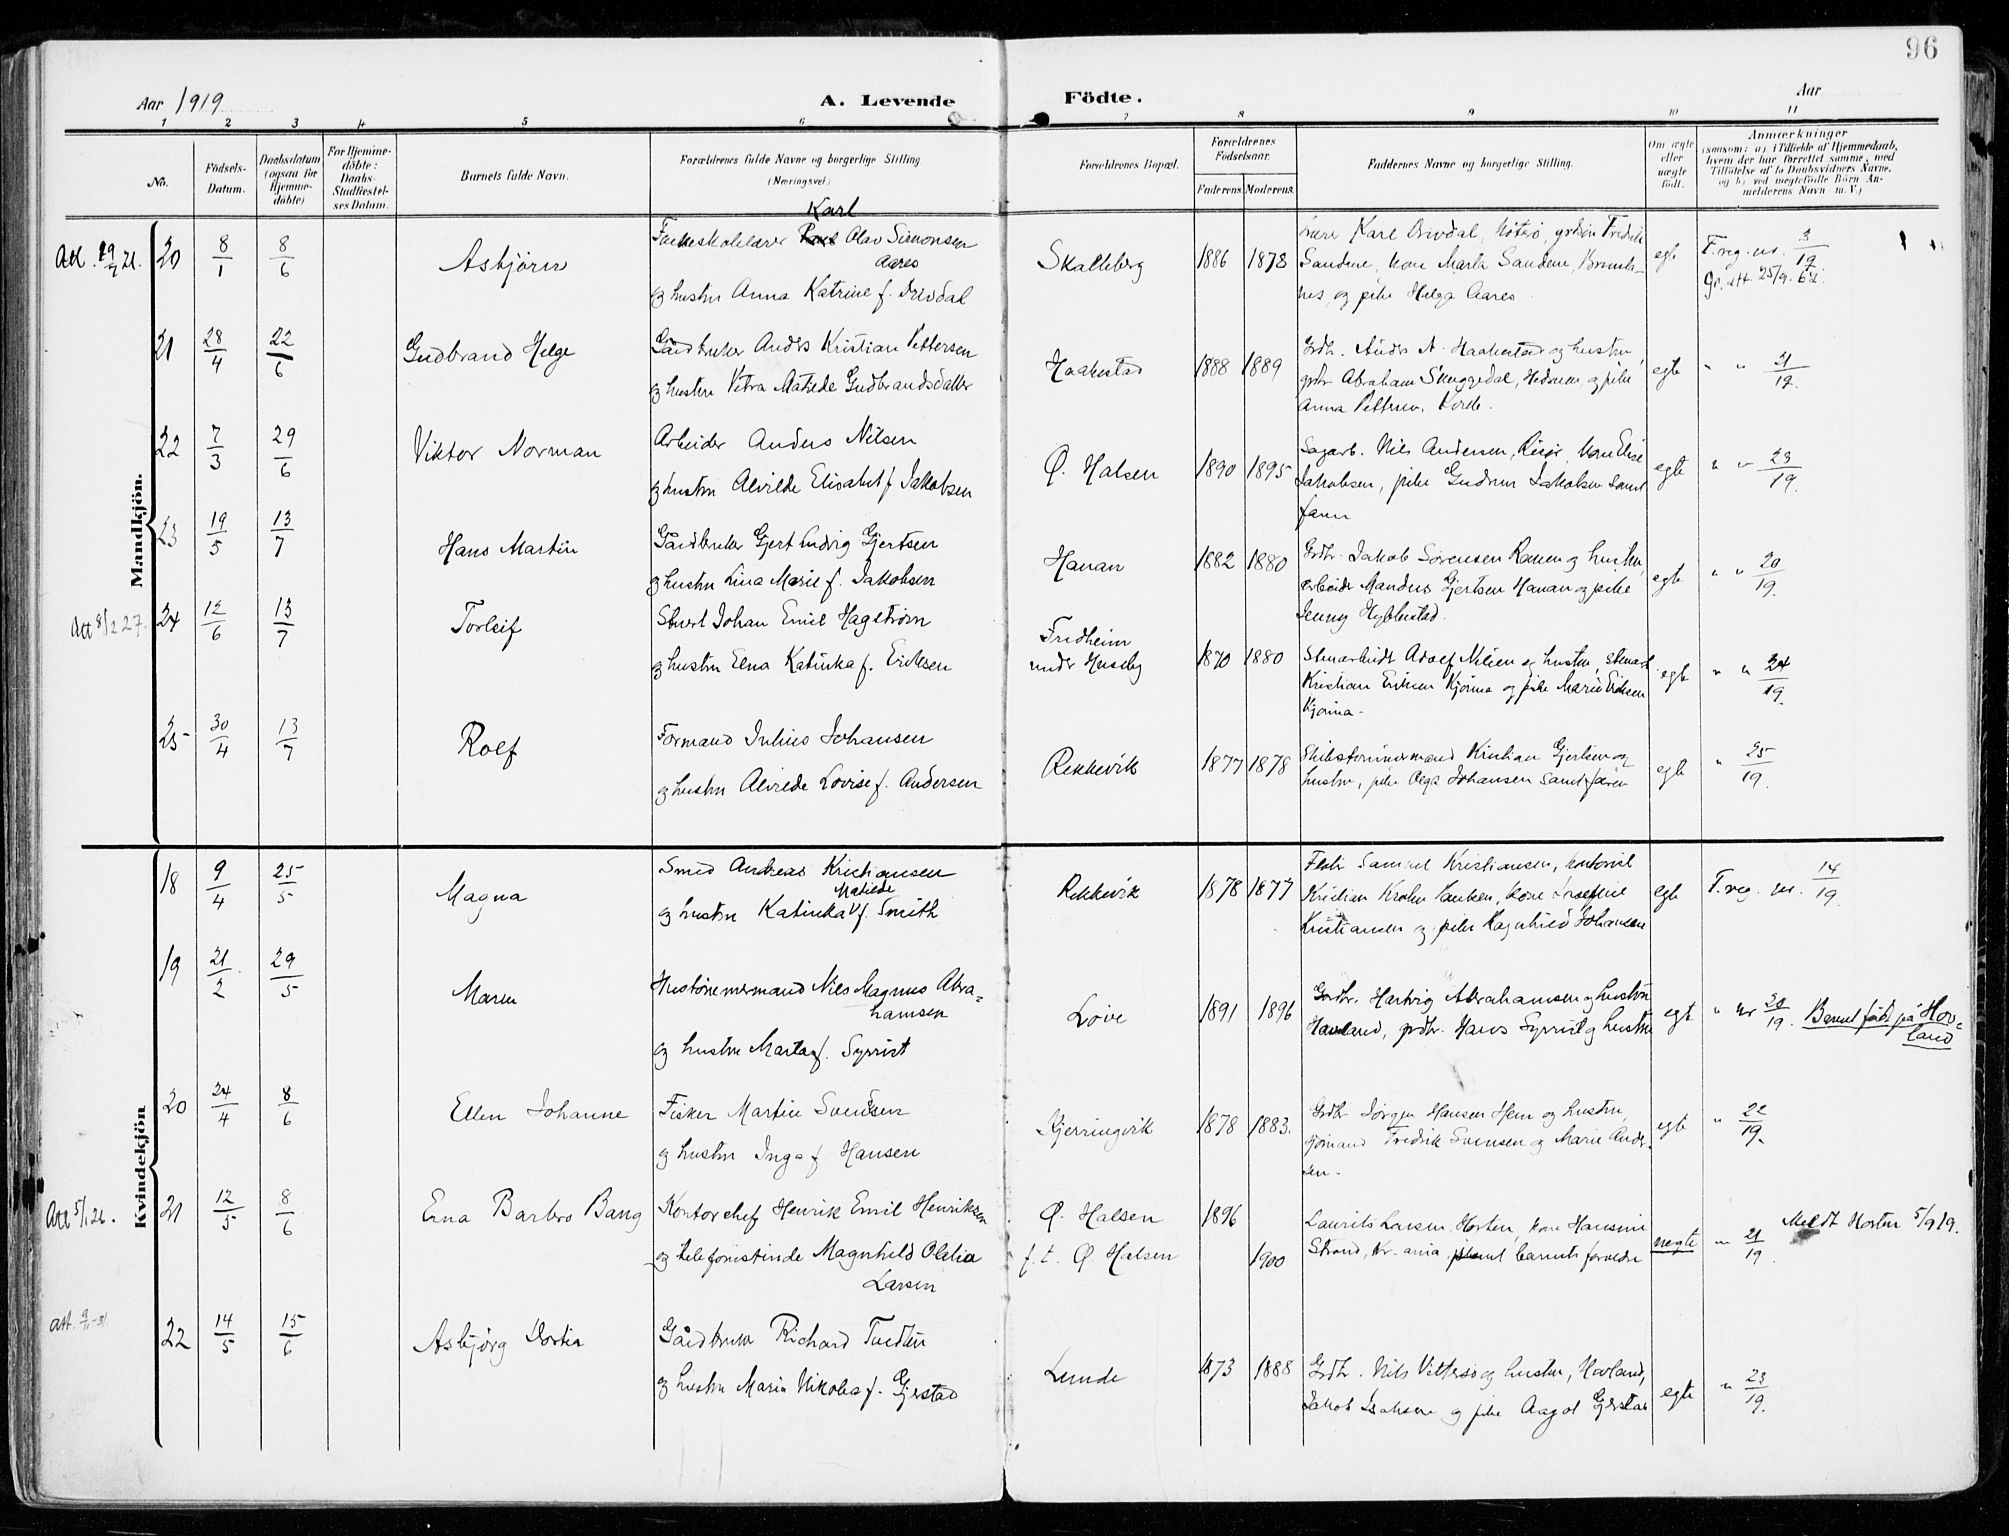 96
Aar 1919
A. Levende
Födte.
Aar
1 2 3 4 5 6 7 8 9 10 11
No.
Födsels-
Datum.
Daabsdatum
(ogsaa for
Hjemme-
döbte)
For Hjemme-
döbte:
Daabs-
Stadfæstel-
ses Datum.
Barnets fulde Navn.
Forældrenes fulde Navne og borgerlige Stilling.
(Næringsvei.)
Forældrenes Bopæl.
Forældrenes
Födselsaar.
Faderens. Moderens.
Faddernes Navne og borgerlige Stilling.
Om ægte
eller
uægte
født.
Anmærkninger
(saasom: a) i Tilfælde af Hjemmedaab,
hvem der har forrettet samme, med
Tilföielse af to Daabsvidners Navne,
og b) ved uægtefödte Börn An-
melderens Navn m. V.)
Mandkjön.
20 8/1 8/6 Asbjörn
Karl
Olav Simonsen
Aares
og hustru Anna Katrine f. Drivdal
Skalleberg 1886 1878
Karl Drivdal, Fredrik
Sandene, kone Marta Sandene,
og pike Helga Aares
egte
F. reg. nr. 3/19
25/9. 62.
21 28/4 22/6 Gudbrand Helge
Gårdbruker Anders Kristian Pettersen
og hustru Petra Matilde Gudbrandsdatter
Haakestad 1888 1889
Grdbr. Anders A. Haakestad og hustru,
grdbr Abraham Skuggedal, Hedrum, og pike
Anna Pettersen,
egte " " 31/19.
22 7/3 29/6 Viktor Norman
Arbeider Anders Nilsen
og hustru Alvilde Elisabet f. Jakobsen
Ø. Halsen 1890 1895
Sagarb. Nils Andersen, kone Elise
Jakobsen, pike Gudrun Jakobsen samt
faren
egte " " 23/19.
23 19/5 13/7 Hans Martin
Gårdbruker Gjert Ludvig Gjertsen
og hustru Lina Marie f. Jakobsen
Hanan 1882 1880
Grdbr. Jakob Sørensen og hustru,
arbeider Mandius Gjertsen Hanan og pike
Jenny
egte " " 20/19.
Att 8/2 27.
24 12/6 13/7 Torleif
Stenarb Johan Emil Hagstrøm
og hustru Elna Katinka f. Eriksen
Fredheim
under Huseby
1870 1880
Stenarbeider Adolf Nilsen og hustru, stenarb
Kristian Eriksen Kjønna og pike Marie Eriksen
Kjønna.
egte " " 24/19.
25 30/4 13/7 Rolf
Formand Julius Johansen
og hustru Alvilde Lovise f. Andersen
Rekkevik 1877 1878
Skibstømmermand Kristian Gjertsen og
hustru, pike Olga Johansen samt faren
egte " 25/19.
Kvindekjön
18 9/4 25/5 Magna
Smed Andreas Kristiansen
Matilde
og hustru Katinka f. Smith
Rekkevik 1878 1877
Samuel Kristiansen, kontorist
Kristian kone Josefine
Kristiansen og pike Ragnhild Johansen
egte F. reg. nr. 14/19.
19 21/2 29/5 Maren
Hustømmermand Nils Magnus Abra-
hamsen
og hustru Marta f. Syrrist
Løve 1891 1896
Grdbr. Hartvig Abrahamsen og hustru
Havland, grdbr. Hans Syrrist og hustru
egte " nr 30/19. Barnet født på Hov-
land
20 24/4 8/6 Ellen Johanne
Fisker Martin Svendsen
og hustru Inga f. Hansen
Kjerringvik 1878 1883.
Grdbr Jørgen Hansen Hem og hustru,
sjømand Fredrik Svensen og Marie Ander-
sen.
egte " 22/19.
Att 5/1 26.
21 12/5 8/6 Erna Barbro Bang
Kontorchef Henrik Emil Henriksen
og telefonistinde Magnhild Olalia
Larsen
Ø. Halsen
f. t. Ø. Halsen
1896
1900
Laurits Larsen, Horten, kone Hansine
Strand, Kr.ania samt barnets forældre
uegte " 21/19. Meldt Horten 5/9 19.
22 14/5 15/6 Asbjørg Dortea
Gårdbruker Richard Tvedten
og hustru Maria Nikolea f. Gjerstad
Lunde 1873 1888
Grdbr. Nils Vittersø og hustru, Havland,
Jakob Isaksen og pike Aagot Gjerstad
egte " 23/19.